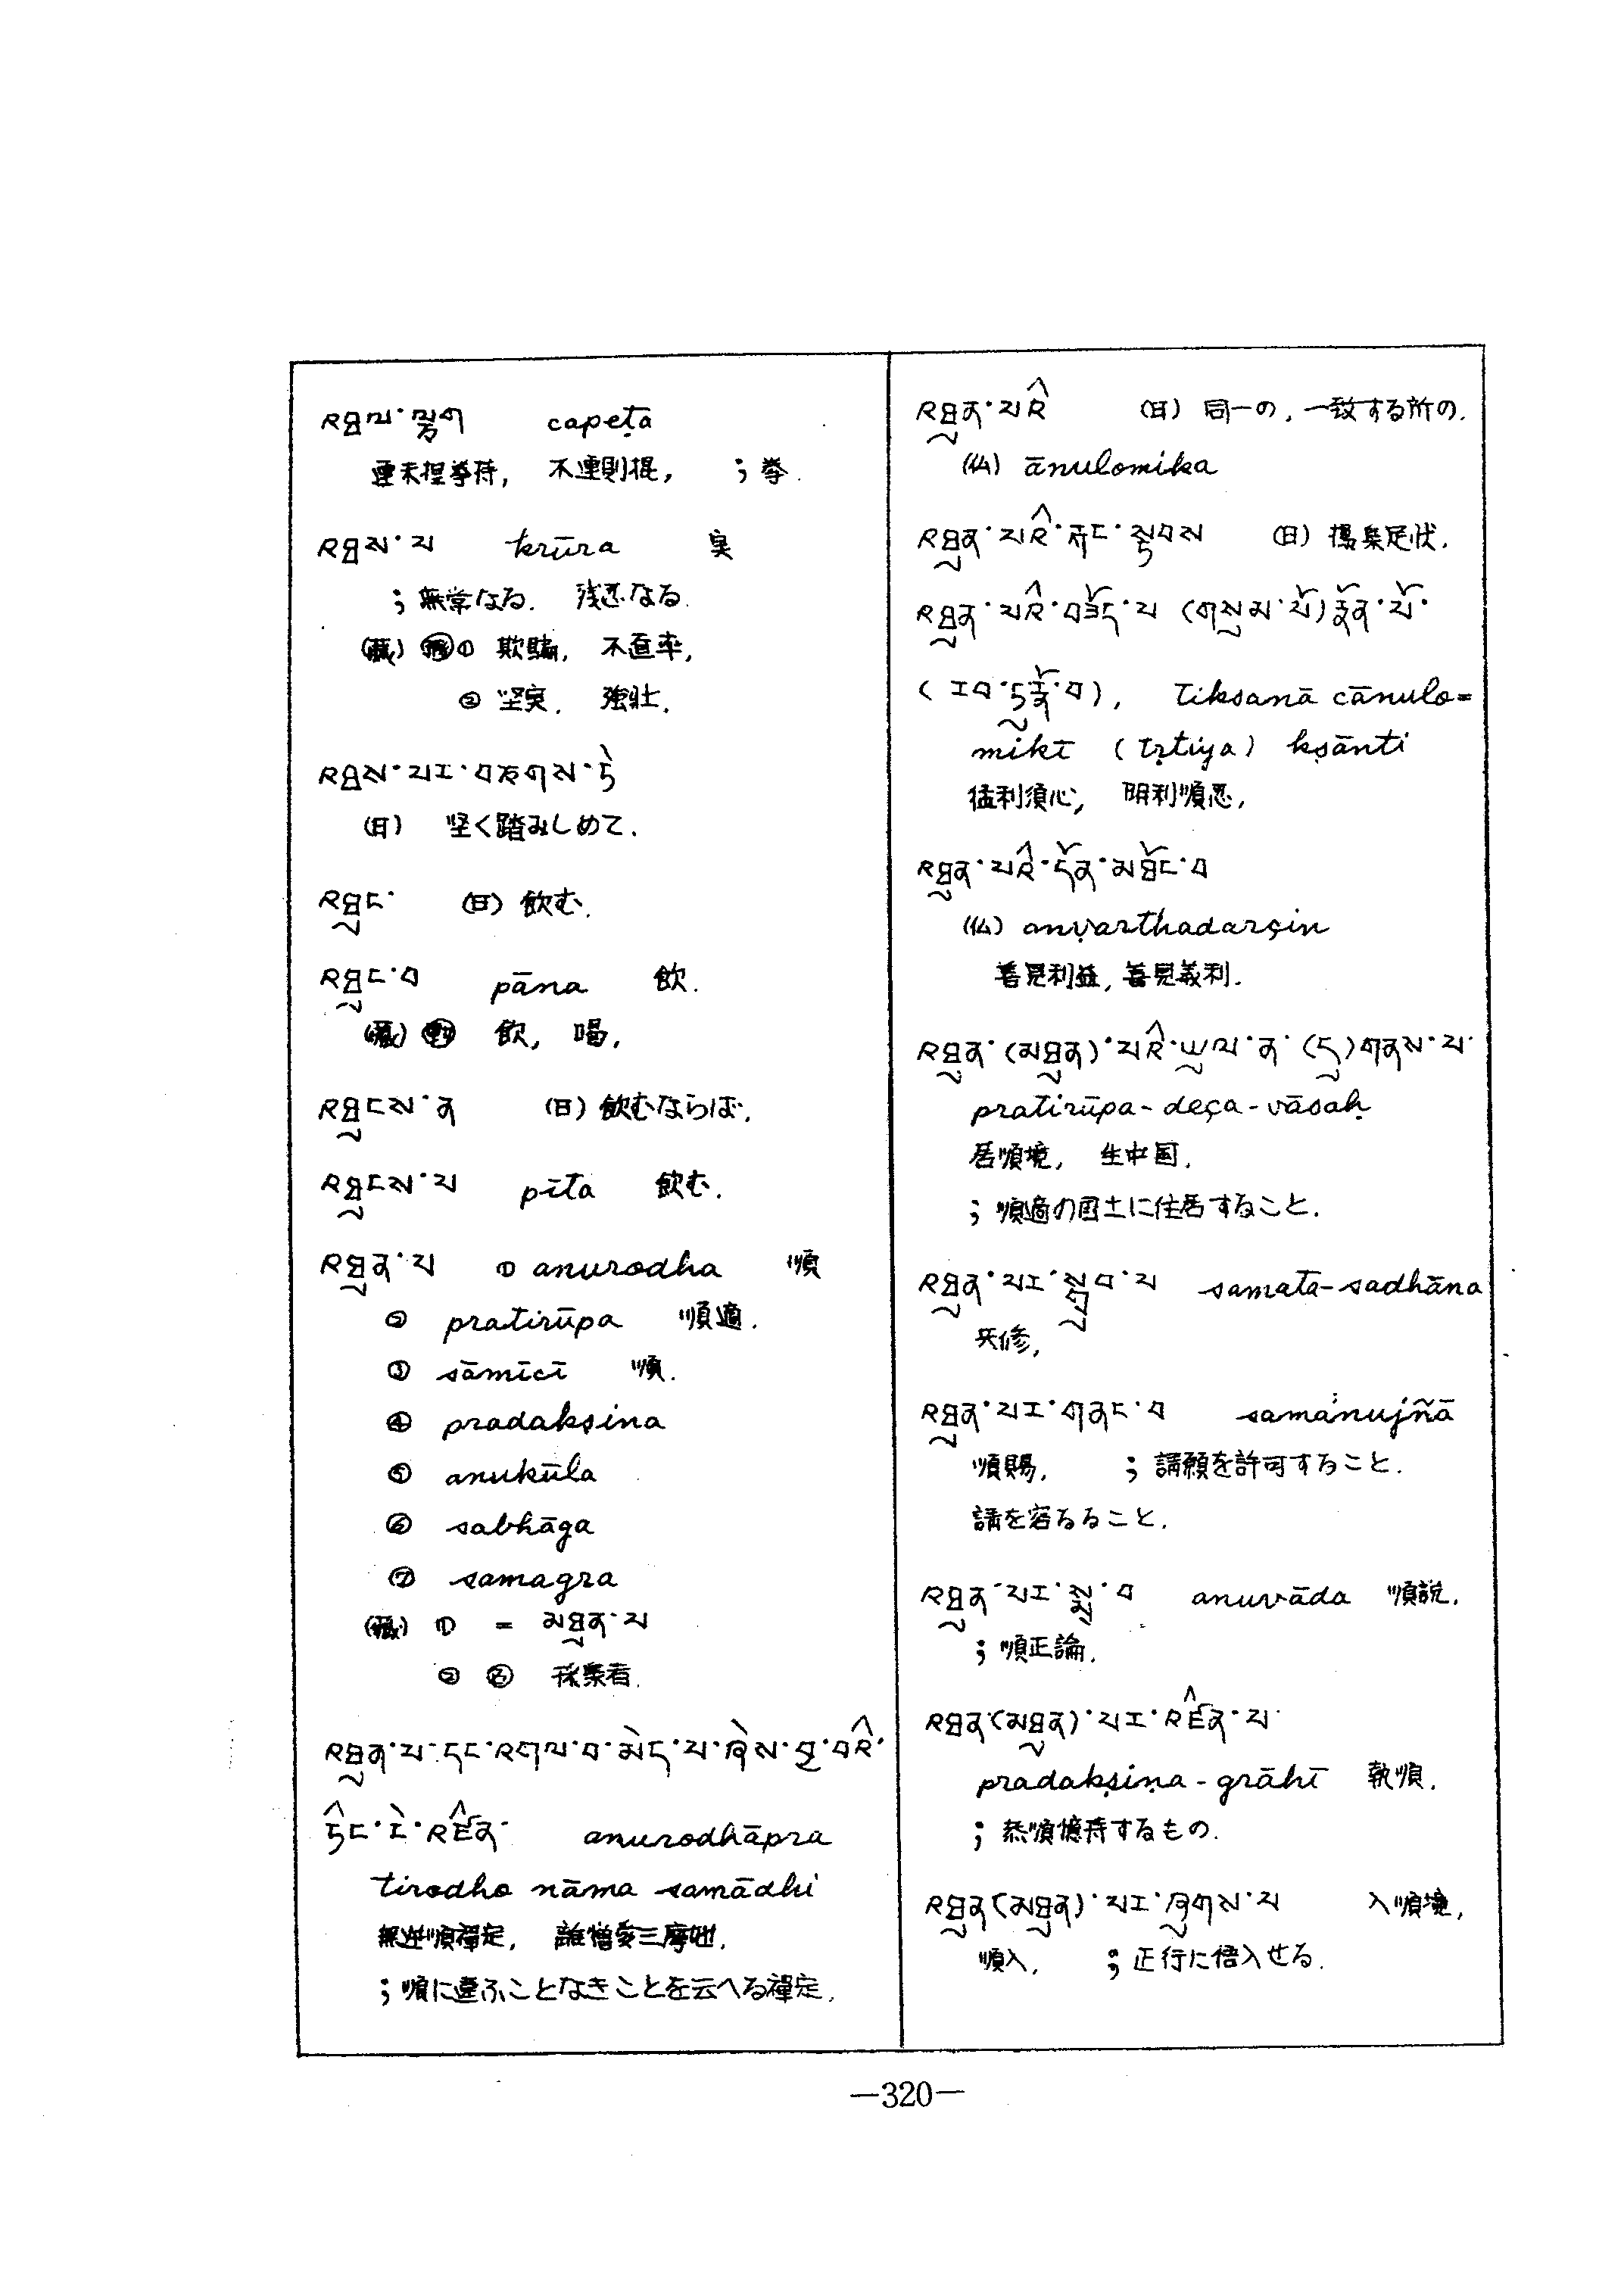 འཐལ་ལྕག capeṭa
連未捏拳待, 不連則棍, ；拳.
འཐས་པ krūra 実
；無常なる. 残忍なる.
(蔵) ① 欺騙, 不直率,
② 坚実. 強壮.
འཐས་པར་བརྡེགས་ཏེ
(日) 坚く踏みしめて.
འཐུང་ (日) 飲む.
འཐུང་བ pāna 飲.
(蔵) 飲, 喝,
འཐུངས་ན (日) 飲むならば.
འཐུངས་པ pīta 飲む.
འཐུན་པ ① anurodha 順
② pratirūpa 順適.
③ sāmīcī 順.
④ pradakṣina
⑤ anukūla
⑥ sabhāga
⑦ samagra
(蔵) ① = མཐུན་པ
② 採集者.
འཐུན་པ་དང་འགལ་བ་མེད་པ་ཞེས་བྱ་བའི་
ཏིང་ངེ་འཛིན་ anurodhāpra
tirodho nāma samādhi
無逆順禪定, 離憎愛三摩地.
；順に違ふことなきことを云へる禪定.
འཐུན་པའི (日) 同一の, 一致する所の.
(仏) ānulomika
འཐུན་པའི་རྐང་སྟབས (日) 揚集足状.
འཐུན་པའི་བཟོད་པ (གསུམ་པོ) རྣོན་པོ་
(རབ་ཏུ་རྣོ་བ), tiksanā cānulo=
mikī (tṛtiya) kṣānti
猛利須心, 明利順忍,
འཐུན་པའི་དོན་མཐོང་བ
(仏) anvarthadarçin
善見利益, 善見義利.
འཐུན་(མཐུན)་པའི་ཡུལ་ན་(དུ)གནས་པ་
pratirūpa-deça-vāsaḥ
居順境, 生中国.
；順適の国土に住居すること.
འཐུན་པར་སྒྲུབ་པ samatā-sadhāna
共修,
འཐུན་པར་གནང་བ samanujñā
順賜, ；請願を許可すること.
請を容るること.
འཐུན་པར་སྨྲ་བ anuvāda 順説.
；順正論.
འཐུན་(མཐུན)་པར་འཛིན་པ་
pradakṣiṇa-grāhī 執順.
；恭順憶持するもの.
འཐུན(མཐུན)་པར་ཞུགས་པ 入順境,
順入. ；正行に悟入せる.
—320—